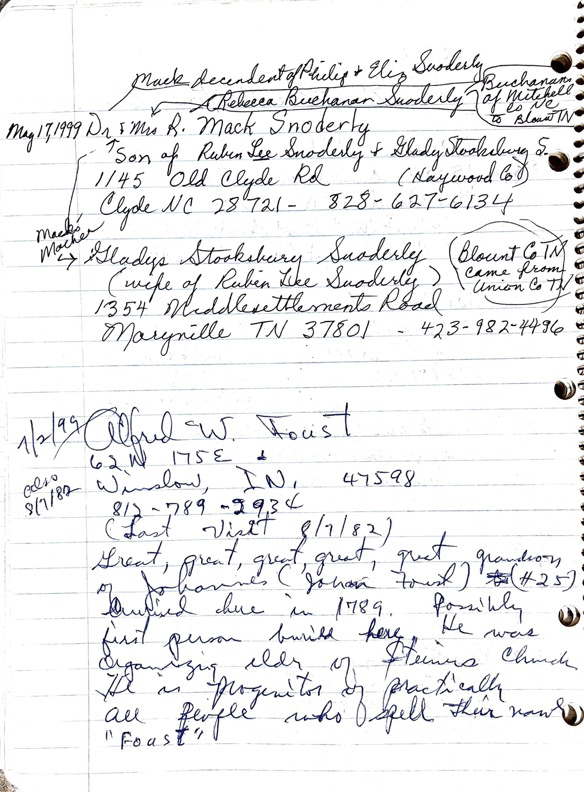 Mack decendent of Philip & Eliz Snoderly
Rebecca Buchanan Snoderly
Buchanans
of Mitchell
Co NC
to Blount TN
May 17, 1999 Dr & Mrs R. Mack Snoderly
Son of Rubin Lee Snoderly & Glady Stooksbury S.
1145 Old Clyde Rd (Haywood Co)
Clyde NC 28721 - 828-627-6134
Mack's
Mother
Gladys Stooksbury Snoderly
(wife of Rubin Lee Snoderly)
1354 Middlesettlements Road
Maryville TN 37801 - 423-982-4496
Blount Co TN
came from
Union Co TN
1/2/99 Alfred W. Foust
62 N 175 E
also
8/7/82
Winslow, IN. 47598
812-789-2934
(Last Visit 8/7/82)
Great, great, great, great, great grandson
of Johannes (Johan Foust) (#25)
buried here in 1789. Possibly
first person buried here. He was
organizing eldr of Steiners Church
He is progenitor of practically
all people who spell their name
"Foust"